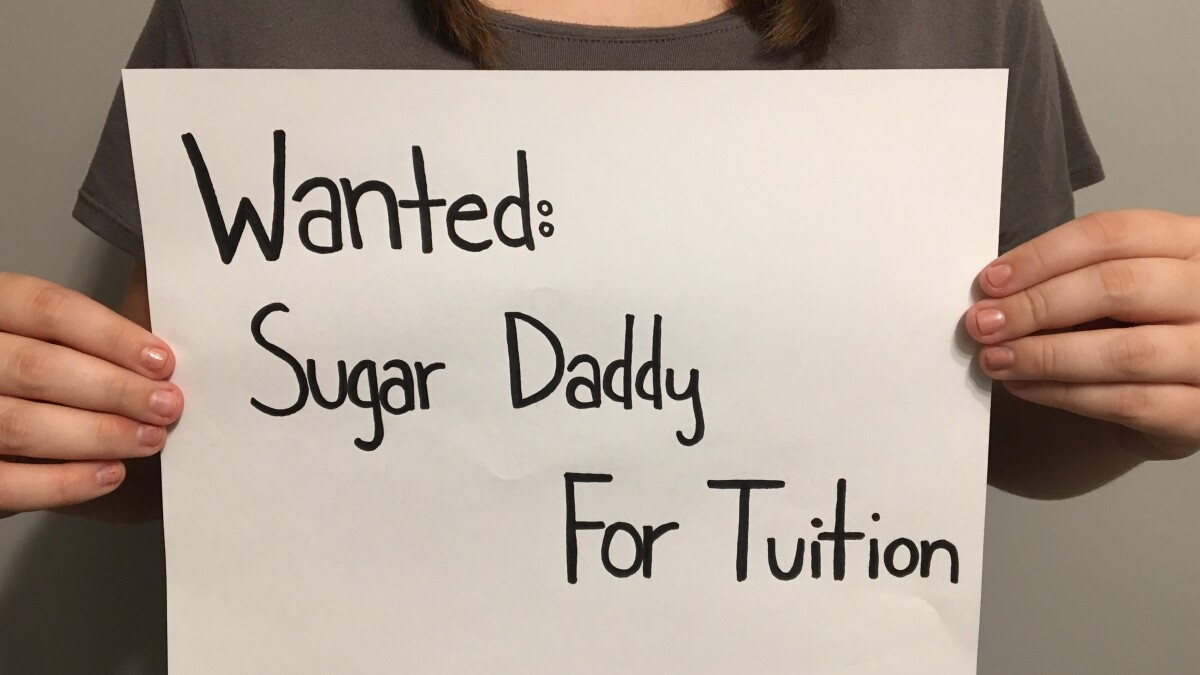 Wanted:
Sugar Daddy
For Tuition